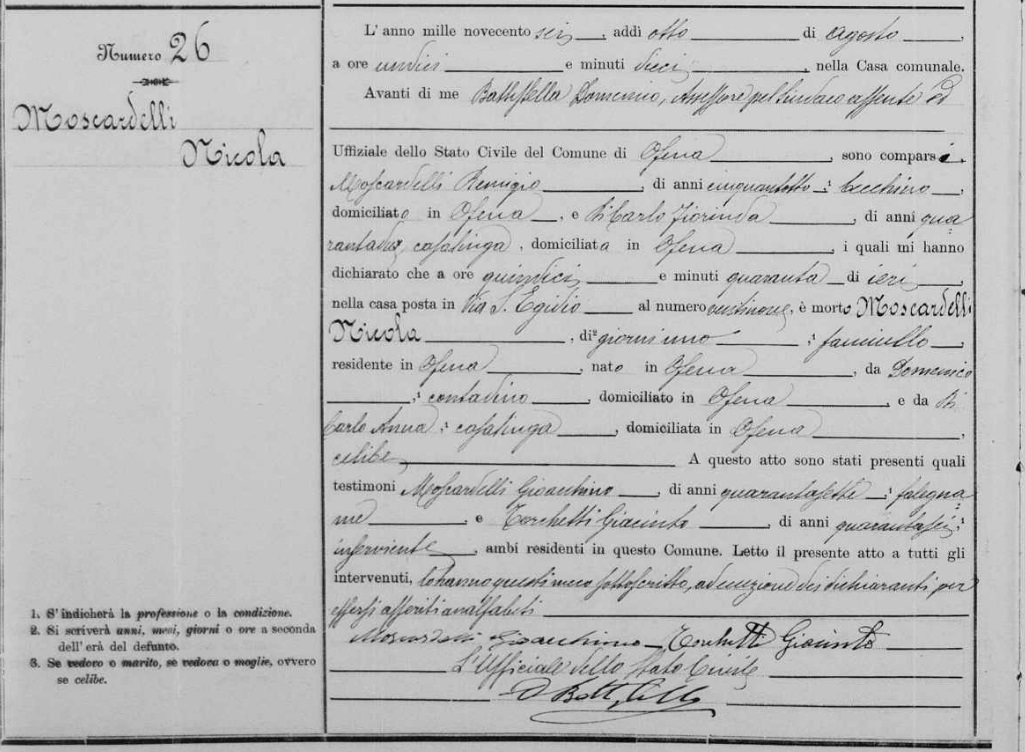 Numero 26
Moscardelli
Nicola
1. S'indicherà la professione o la condizione.
2. Si scriverà anni, mesi, giorni o ore a seconda
dell'erà del defunto.
3. Se vedovo o marito, se vedova o moglie, ovvero
se celibe.
L'anno mille novecento sei, addì otto di Agosto,
a ore undici e minuti dieci, nella Casa comunale.
Avanti di me Battistella Domenico, Assessore pel Sindaco assente ed
Uffiziale dello Stato Civile del Comune di Ofena, sono comparsi
Moscardelli Remigio, di anni cinquantotto,
domiciliato in Ofena, e Di Carlo Fiorinda, di anni qua=
casalinga, domiciliata in Ofena i quali mi hanno
dichiarato che a ore quindici e minuti quaranta di ieri,
nella casa posta in Via S. Egidio al numero, è morto Moscardelli
Nicola, di² giorni uno, fanciullo,
residente in Ofena, nato in Ofena, da Domenico
, contadino, domiciliato in Ofena e da Di
Carlo Anna, casalinga, domiciliata in Ofena,
celibe A questo atto sono stati presenti quali
testimoni Moscardelli Gioacchino, di anni quarantasette, falegna=
me e Torchetti Giacinto, di anni quarantasei,
inserviente, ambi residenti in questo Comune. Letto il presente atto a tutti gli
intervenuti, lo hanno questi meco sottoscritto, ad eccezione dei dichiaranti per
essersi asseriti analfabeti
Moscardelli Gioacchino Torchetti Giacinto
L'Uffiziale dello Stato Civile
D Battistella